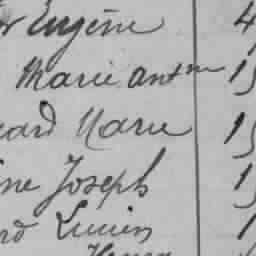 Eugène 4
Marie antne 1
card Marie 15
ine Joseph 15
rd Lucien 1